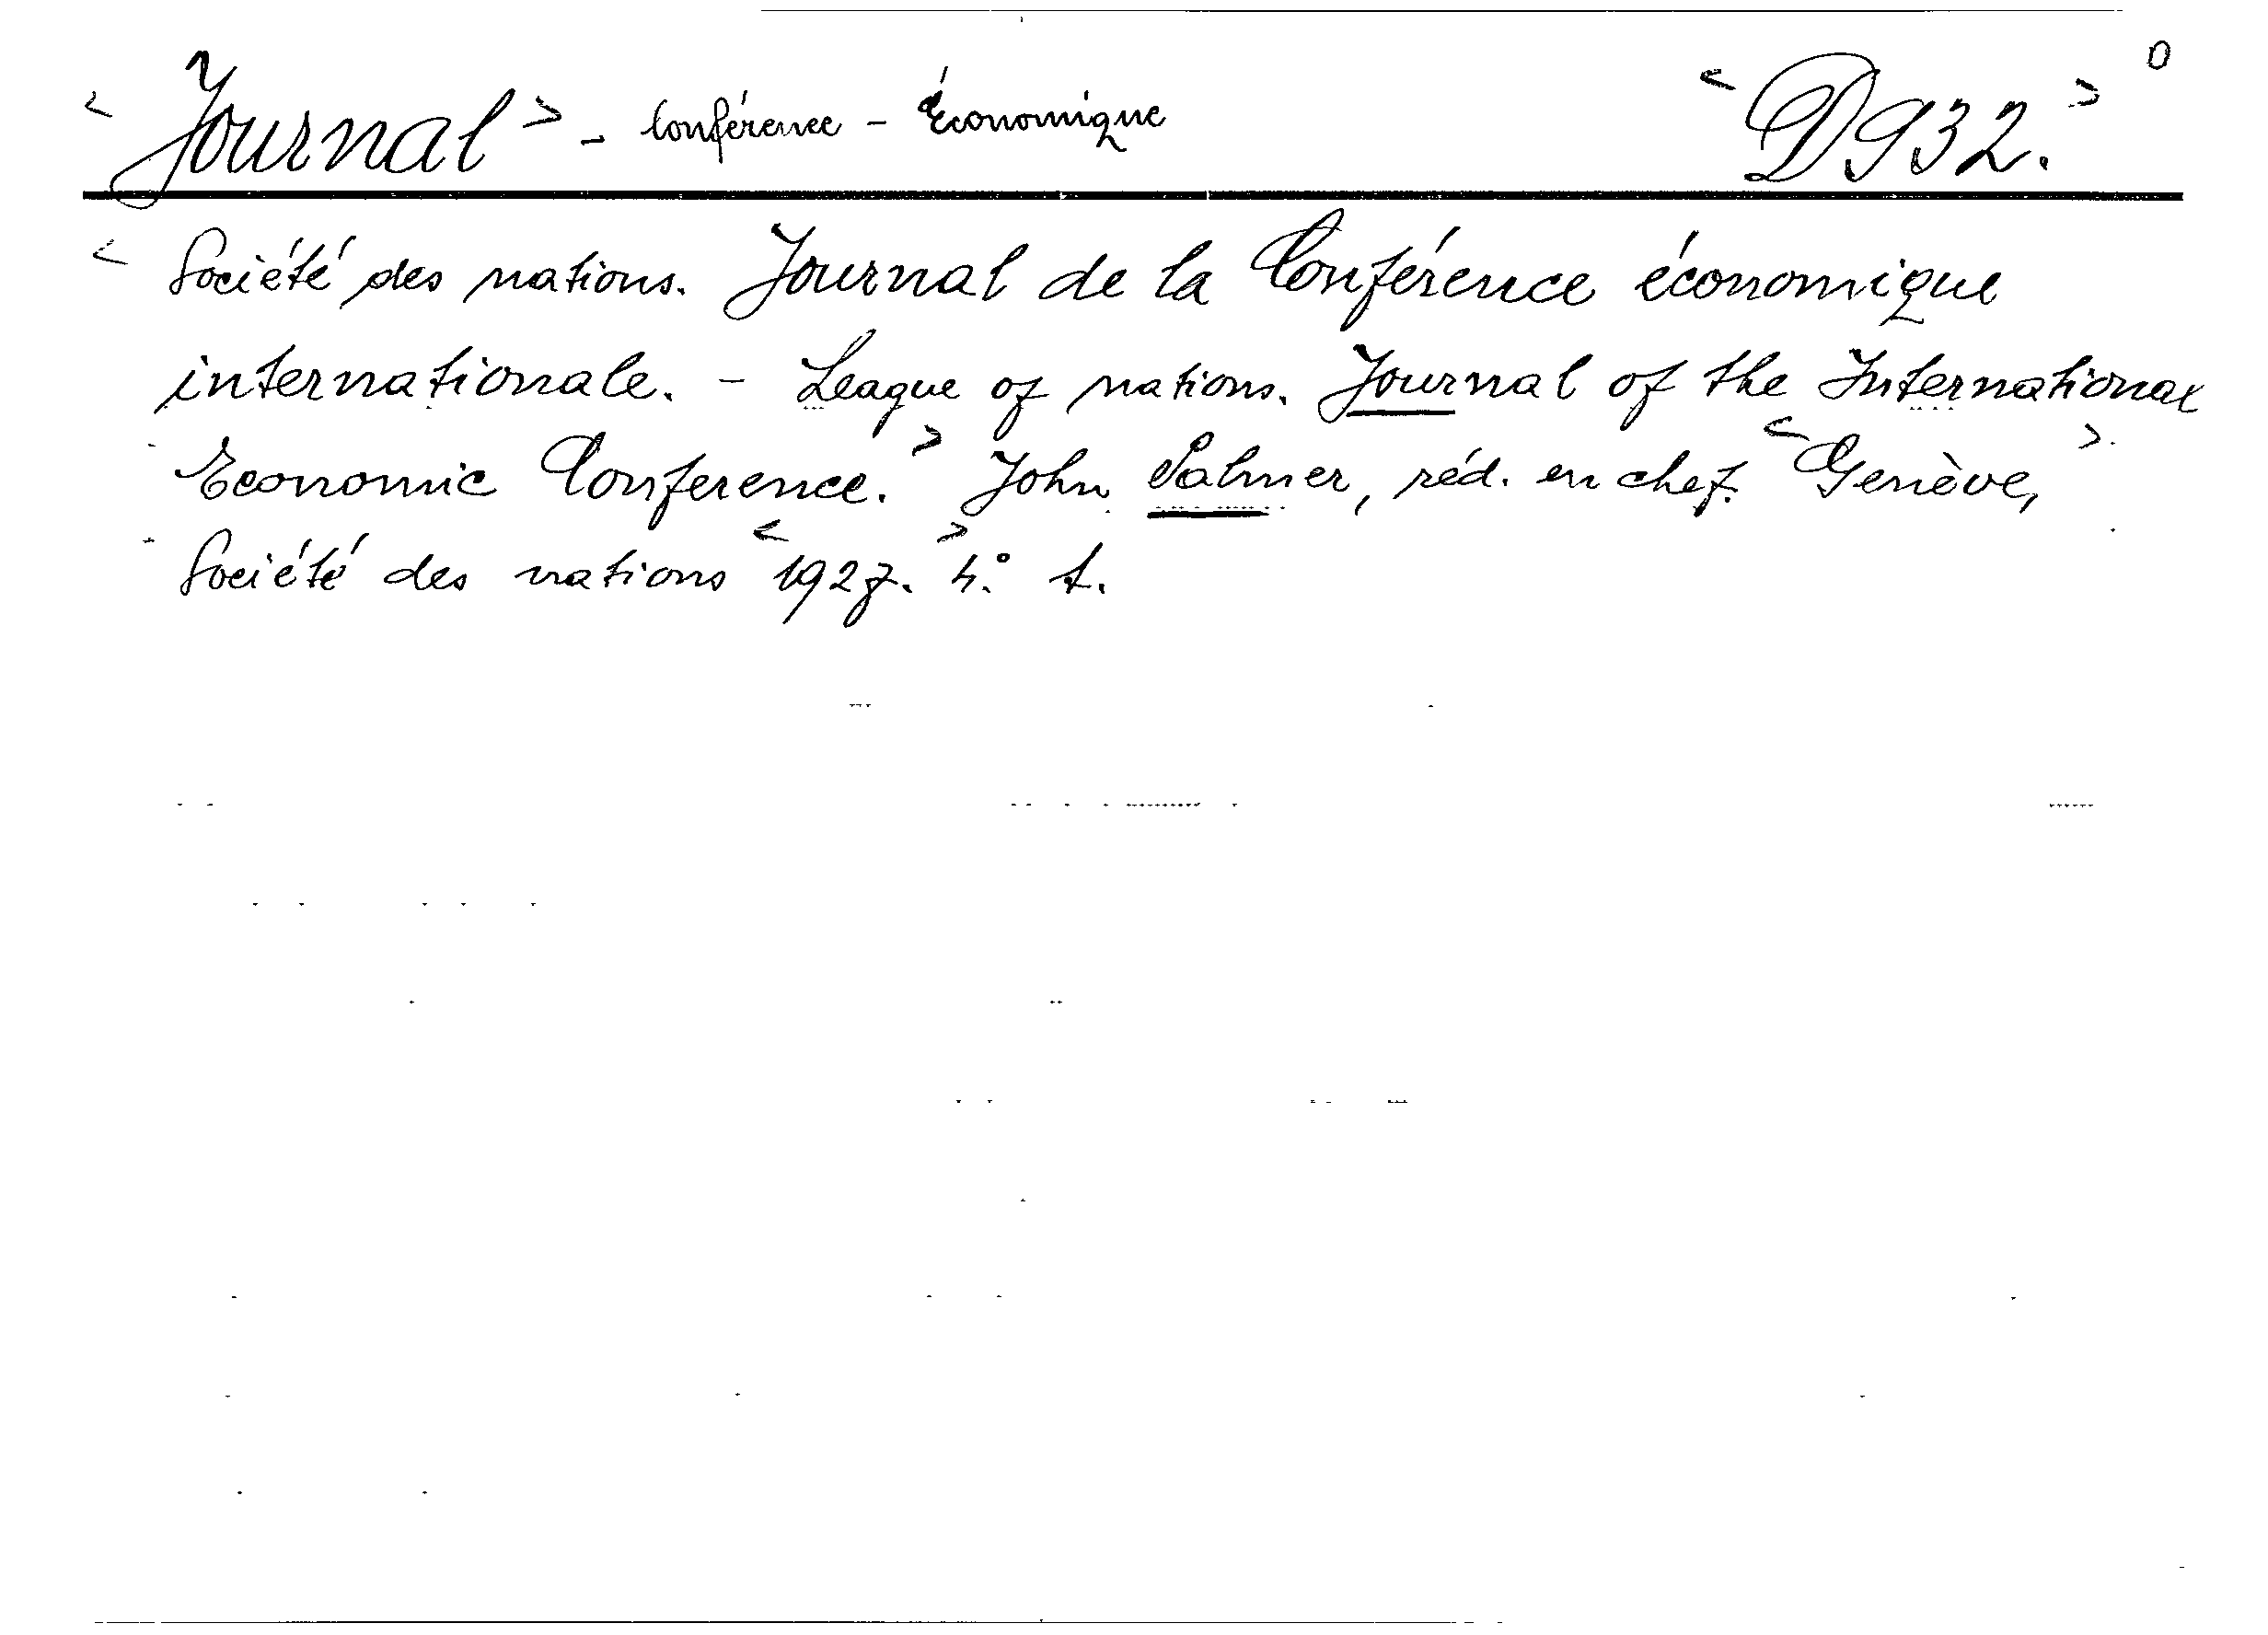 < Journal > - Conférence - Économique < D932. > 0
< Société des nations. Journal de la Conférence économique
internationale. - League of nations. Journal of the International
Economic Conference. > John Palmer, réd. en chef. < Genève, >
Société des nations < 1927. > 4.° t.